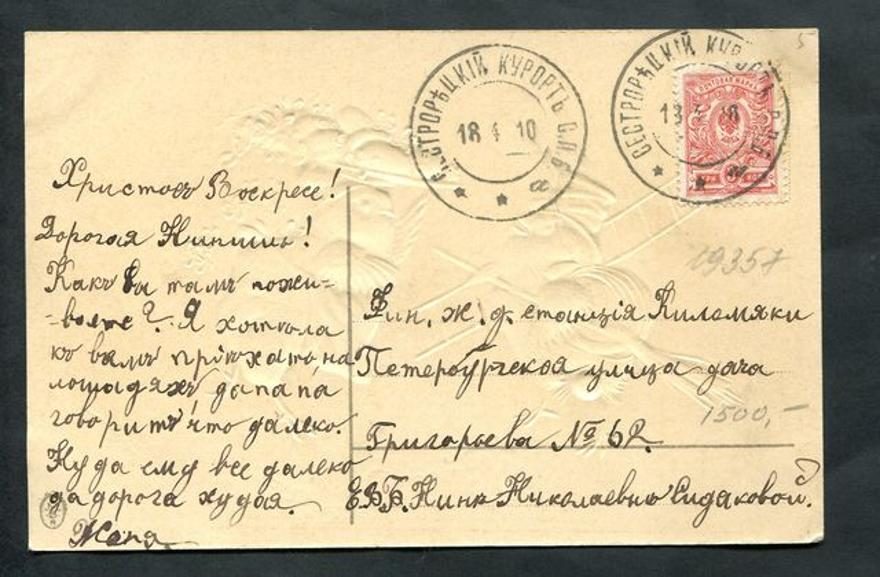 СЕСТРОРѢЦКІЙ КУРОРТЪ С.П.Б.
18 4 10
а
СЕСТРОРѢЦКІЙ КУРОРТЪ
ПОЧТОВАЯ МАРКА
5
19357
1500,-
Христосъ Воскресе!
Дорогая
Какъ вы тамъ пожи-
-ваете? Я хотѣла
къ вамъ пріѣхать на
лошадяхъ, да папа
говоритъ что далеко.
Ну да ему все далеко
да дорога худая.
Женя.
Фин. ж. д. станція Келомяки
Петербургская улица дача
Григорьева №
Е.В.Б. Нинѣ Николаевнѣ Сидяковой.